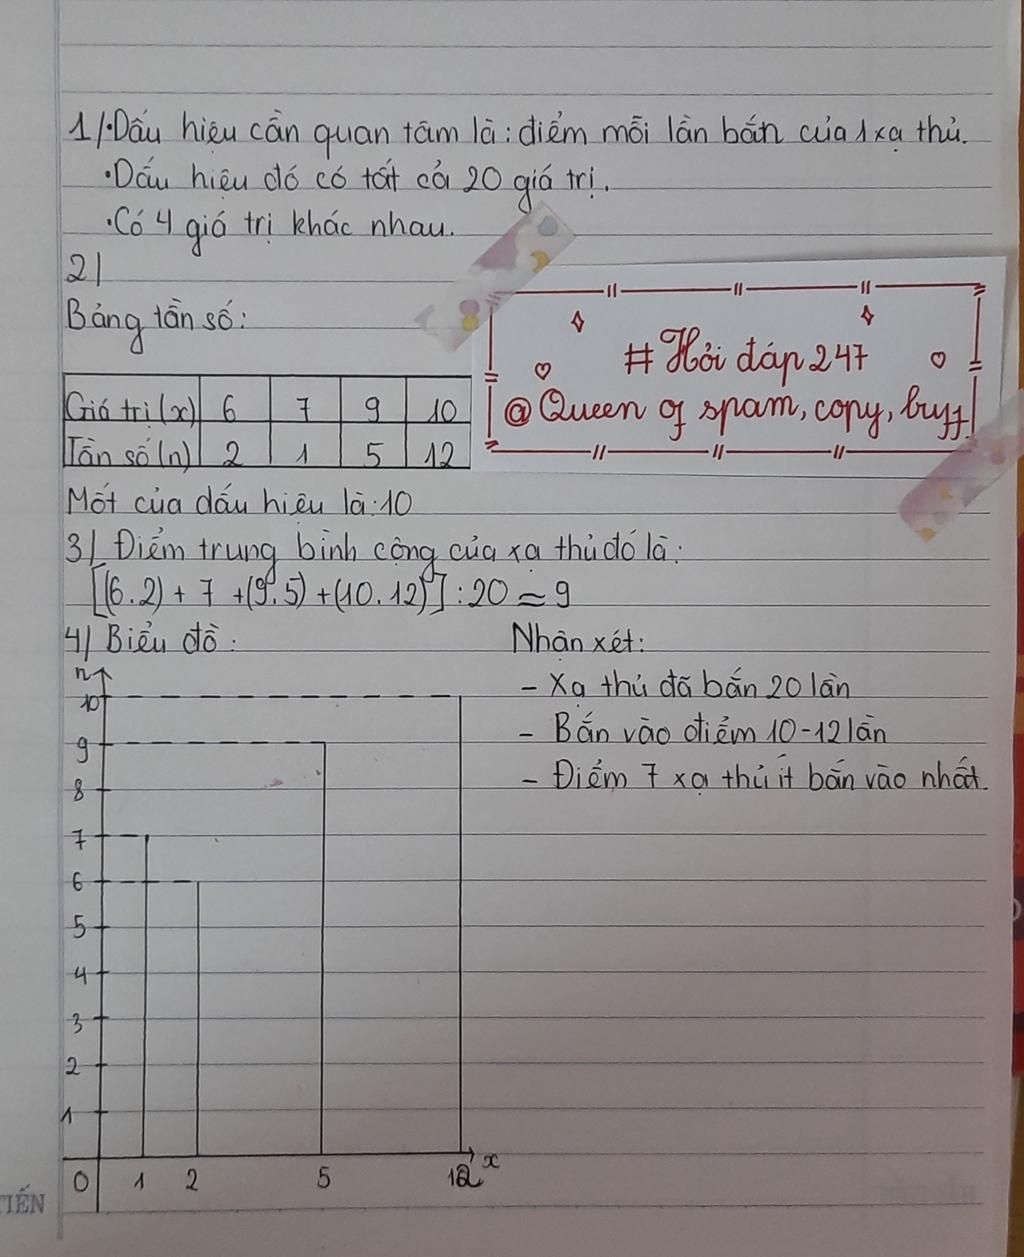 1/•Dấu hiệu cần quan tâm là: điểm mỗi lần bắn của 1 xạ thủ.
•Dấu hiệu đó có tất cả 20 giá trị.
•Có 4 giá trị khác nhau.
2/
Bảng tần số:
# Hỏi đáp 247
@ Queen of spam, copy, buff
Giá trị (x) 6 7 9 10
Tần số (n) 2 1 5 12
Mốt của dấu hiệu là: 10
3/ Điểm trung bình cộng của xạ thủ đó là:
[(6.2) + 7 + (9.5) + (10.12)] : 20 ≈ 9
4/ Biểu đồ:
Nhận xét:
- Xạ thủ đã bắn 20 lần
- Bắn vào điểm 10 - 12 lần
- Điểm 7 xạ thủ ít bắn vào nhất.
n
10
9
8
7
6
5
4
3
2
1
0 1 2 5 12 x
TIẾN